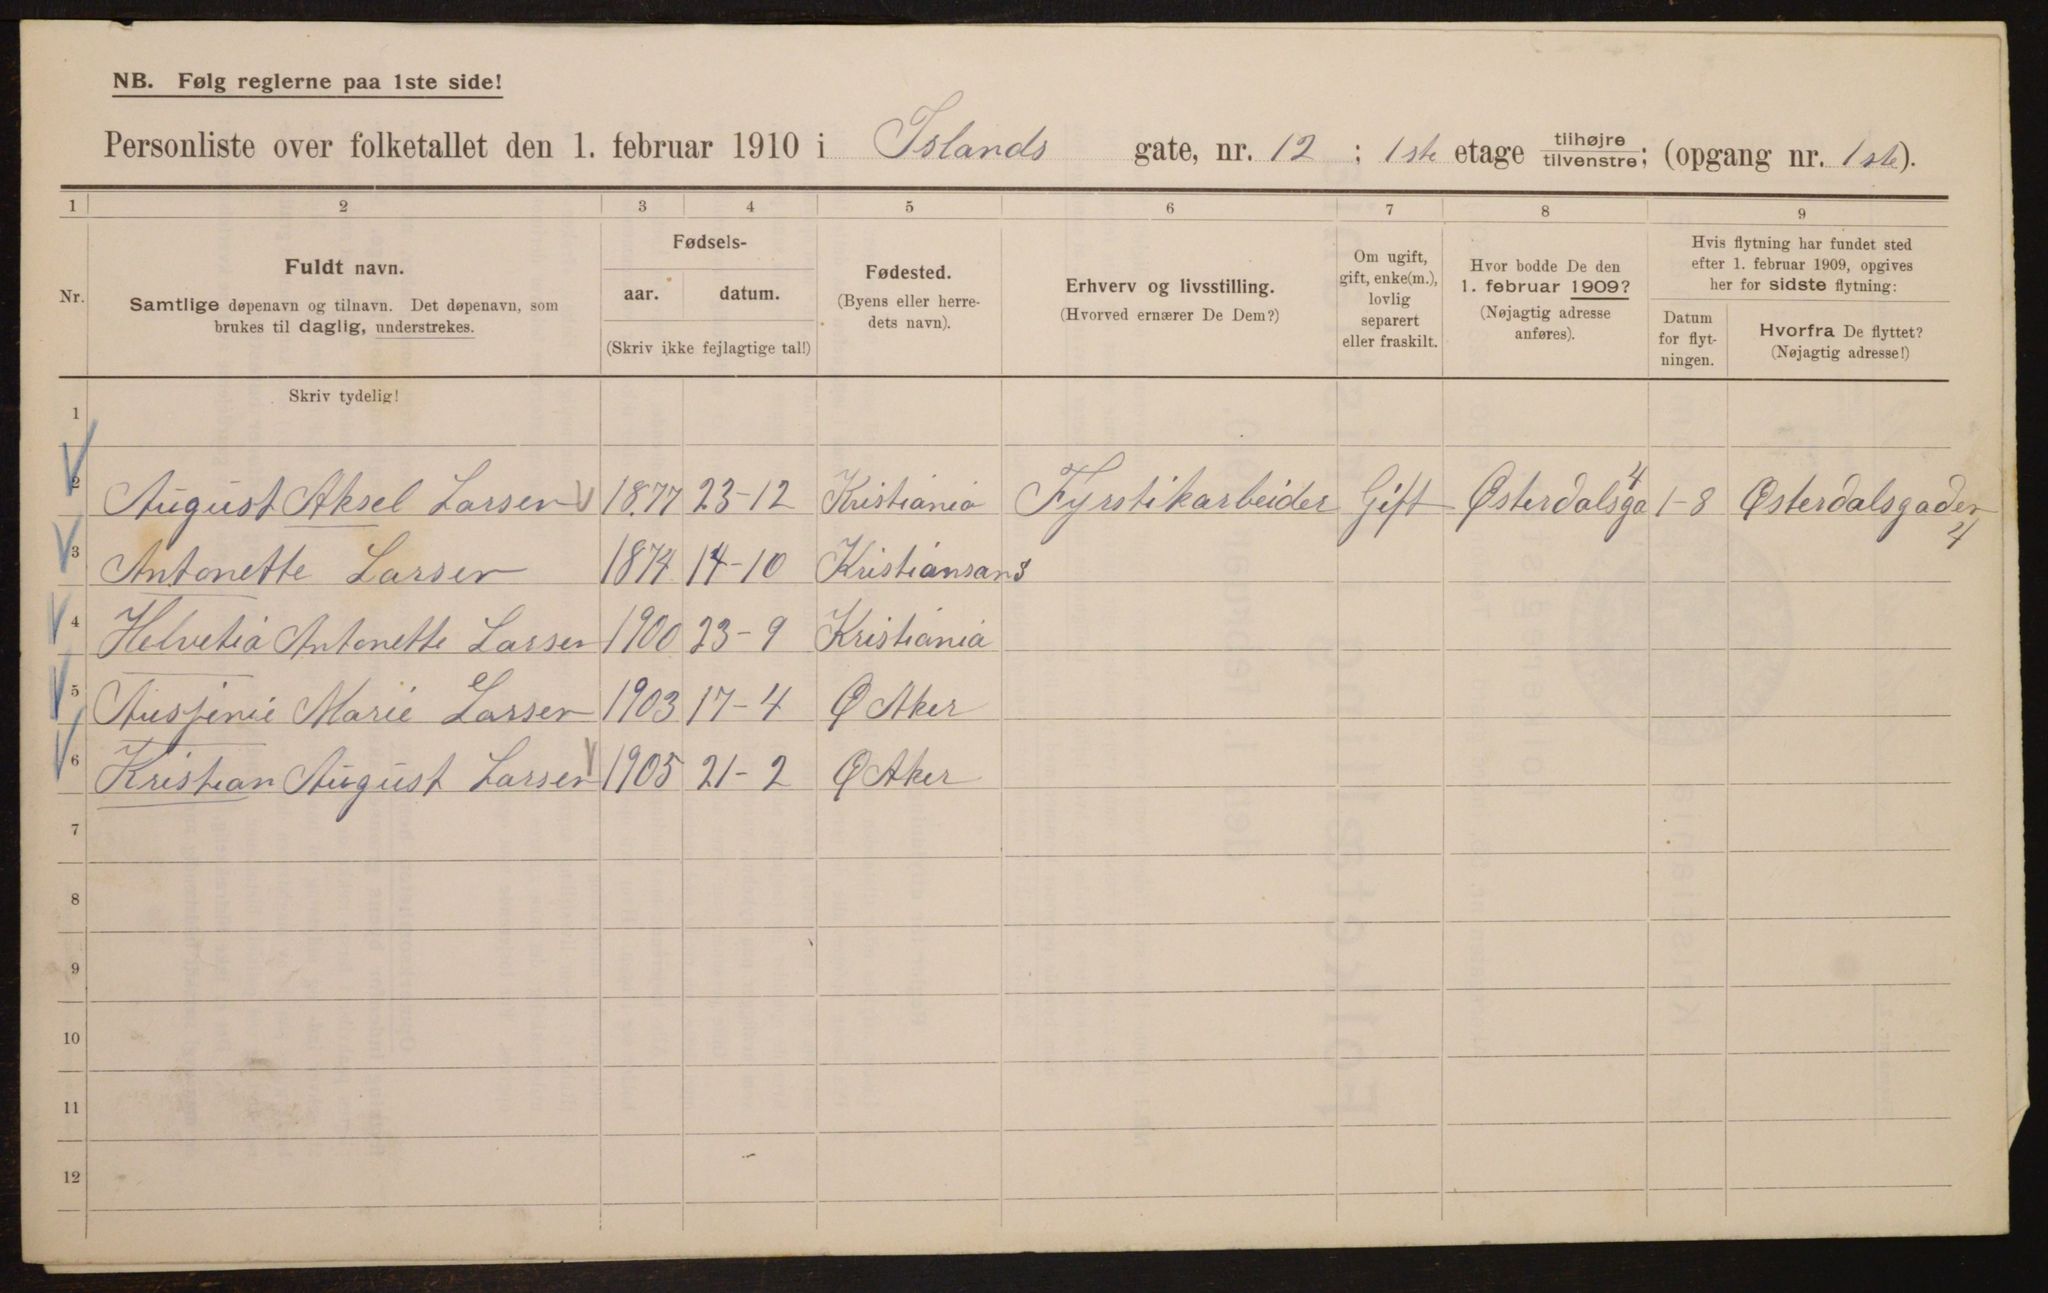 NB. Følg reglerne paa 1ste side!
Personliste over folketallet den 1. februar 1910 i Islands gate, nr. 12 ; 1ste etage tilhøjre tilvenstre; (opgang nr. 1ste).
1 2 3 4 5 6 7 8 9
Nr.
Fuldt navn.
Samtlige døpenavn og tilnavn. Det døpenavn, som
brukes til daglig, understrekes.
Fødsels-
aar. datum.
(Skriv ikke fejlagtige tal!)
Fødested.
(Byens eller herre-
dets navn).
Erhverv og livsstilling.
(Hvorved ernærer De Dem?)
Om ugift,
gift, enke(m.),
lovlig
separert
eller fraskilt.
Hvor bodde De den
1. februar 1909?
(Nøjagtig adresse
anføres).
Hvis flytning har fundet sted
efter 1. februar 1909, opgives
her for sidste flytning:
Datum
for flyt-
ningen.
Hvorfra De flyttet?
(Nøjagtig adresse!)
Skriv tydelig!
1
2 August Aksel Larsen 1877 23-12 Kristiania Fyrstikarbeider Gift Østerdalsga 4 1-8 Østerdalsgaden 4
3 Antonette Larsen 1874 14-10 Kristiansand
4 Helvetia Antonette Larsen 1900 23-9 Kristiania
5 Marie Larsen 1903 17-4 Ø Aker
6 Kristian August Larsen 1905 21-2 Ø Aker
7
8
9
10
11
12